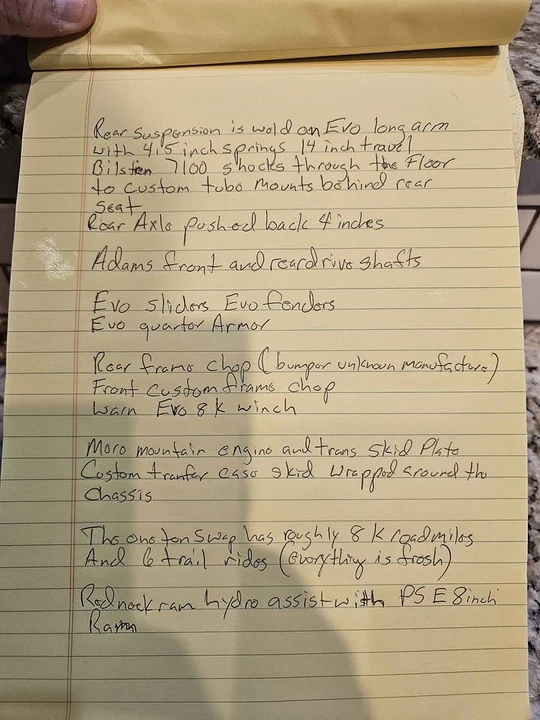 Rear suspension is weld on Evo long arm
with 4.5 inch springs 14 inch travel
Bilstien 7100 shocks through the Floor
to custom tube mounts behind rear
seat
Rear Axle pushed back 4 inches
Adams front and rear drive shafts
Evo sliders Evo fenders
Evo quarter Armor
Rear frame chop (bumper unknown manufacture)
Front custom frame chop
Warn Evo 8K winch
More mountain engine and trans skid Plate
Custom tranfer case skid wrapped around the
Chassis
The one ton swap has roughly 8K road miles
And 6 trail rides (everything is fresh)
Redneck ram hydro assist with PSE 8 inch
Ram